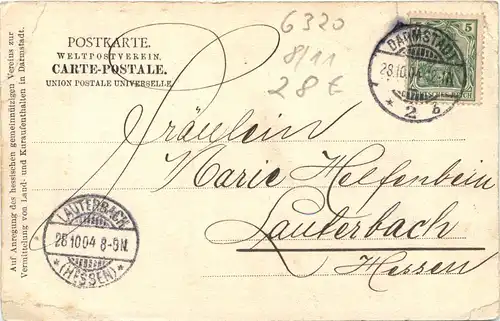 Auf Anregung des hessischen gemeinnützigen Vereins zur
Vermittelung von Land- und Kuraufenthalten in Darmstadt.
POSTKARTE.
WELTPOSTVEREIN.
CARTE-POSTALE.
UNION POSTALE UNIVERSELLE.
6320
8/11
28 €
DARMSTADT
28.10.04
* 2 b
5
Fräulein
Marie Helfenbein
Lauterbach
Hessen
LAUTERBACH
28 10 04 8-9N.
* (HESSEN) *